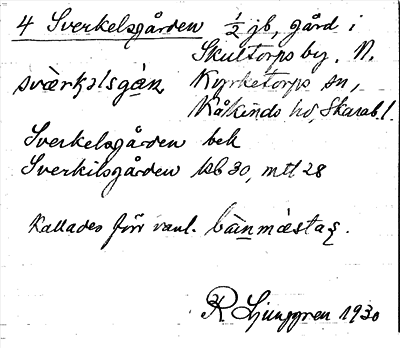 4 Sverkelsgården 1/2 jb, gård i
Skultorps by, N.
svàrkəlsgàn Kyrketorps sn,
Kåkinds hd, Skarab.l.
Sverkelsgården bek
Sverkilsgården kb 30, mtl 28
Kallades förr vanl. bànmæsta
R Ljunggren 1930